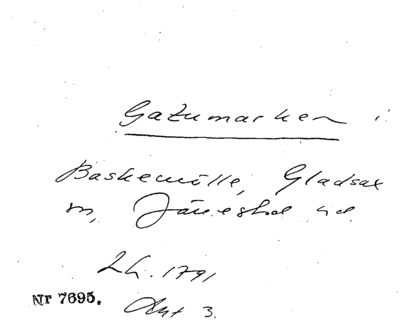 Gatumarken i
Baskemölle, Gladsax
sn, Järrestad hd.
Lh. 1791
Nr 7695.
Akt 3.